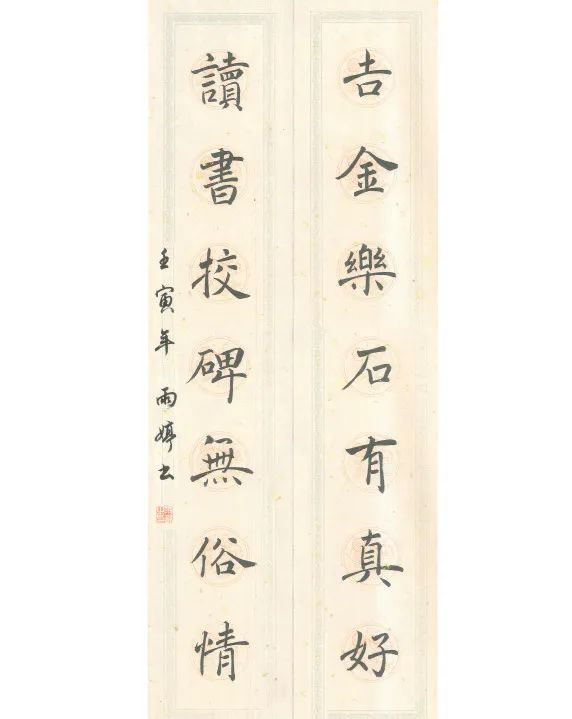 吉金樂石有真好
讀書挍碑無俗情
壬寅年 雨婷书